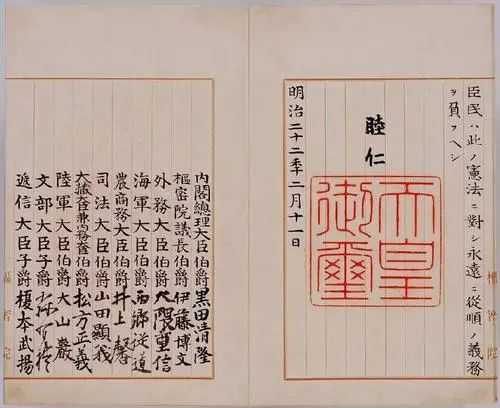 臣民ハ此ノ憲法ニ對シ永遠ニ從順ノ義務
ヲ負フヘシ
睦仁
天皇
御璽
明治二十二年二月十一日
内閣總理大臣伯爵黒田清隆
樞密院議長伯爵伊藤博文
外務大臣伯爵大隈重信
海軍大臣伯爵西郷從道
農商務大臣伯爵井上馨
司法大臣伯爵山田顯義
大藏大臣兼内務大臣伯爵松方正義
陸軍大臣伯爵大山巖
文部大臣子爵
遞信大臣子爵榎本武揚
樞密院